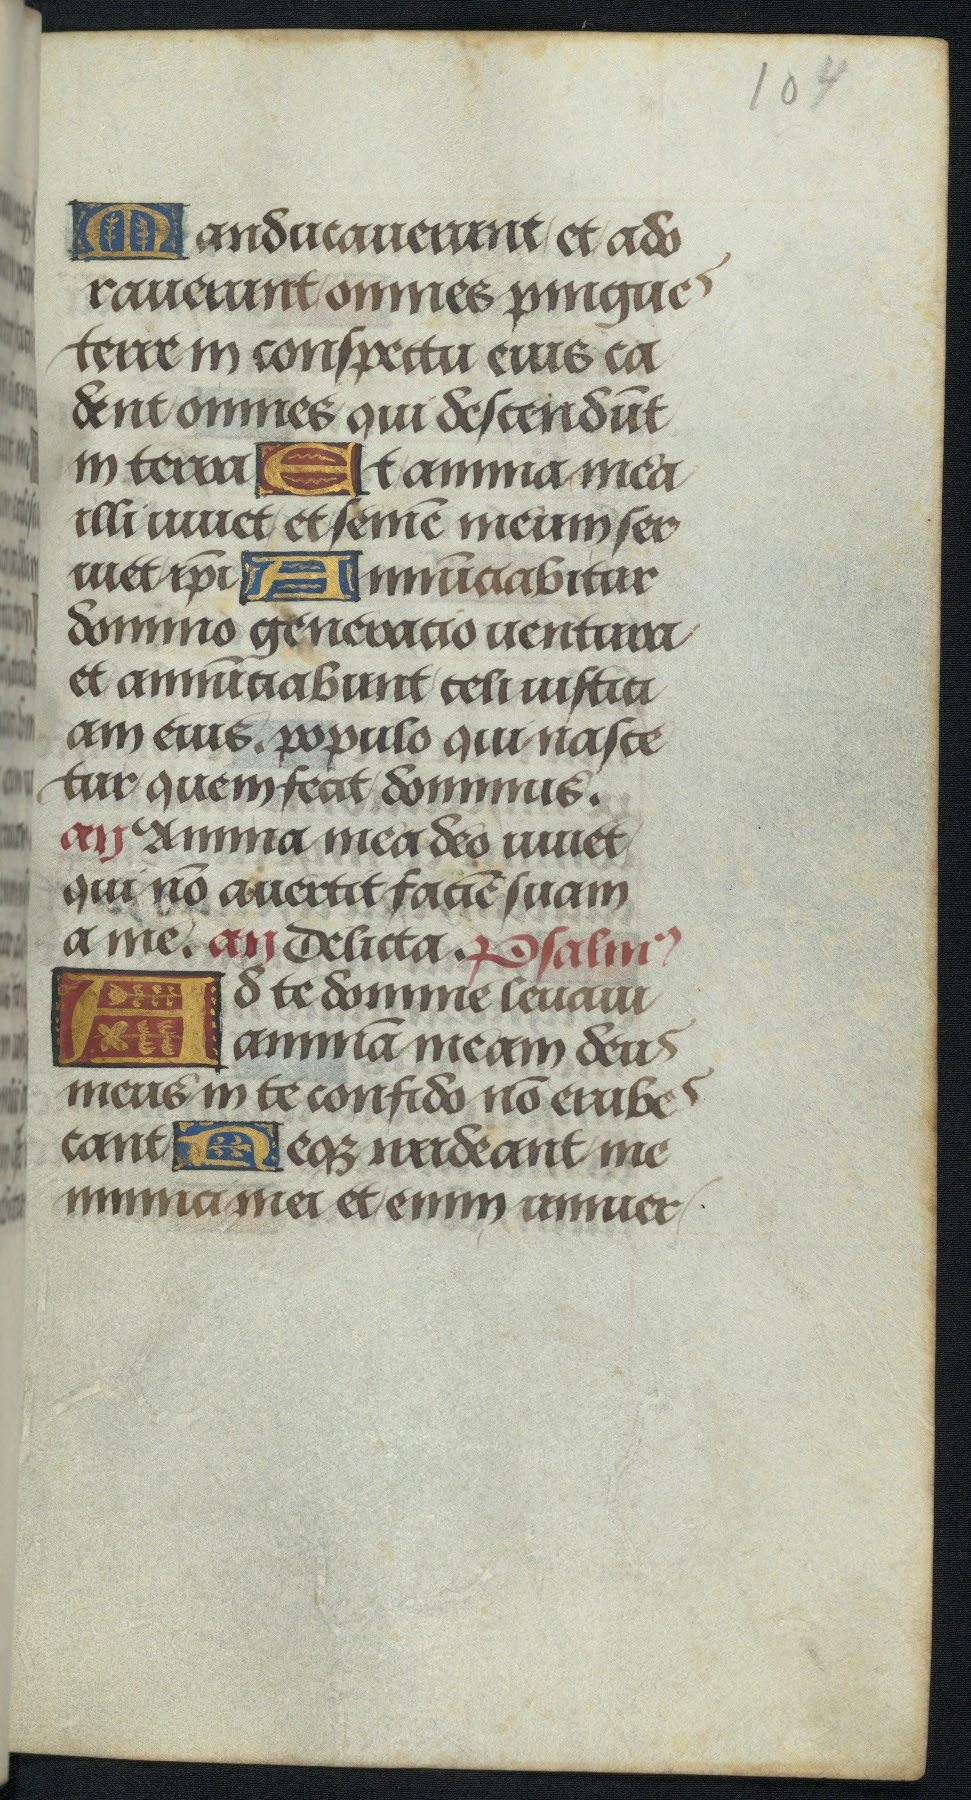 104
Manducauerunt et ado
rauerunt omnes pingues
terre in conspectu eius ca
dent omnes qui descendūt
in terra Et anima mea
illi uiuet et semē meum ser
uiet ip̄i Annūciabitur
domino generatio uentura
et annūciabunt celi iustici
am eius. populo qui nasce
tur quem fecit dominus.
añ Anima mea deo uiuet
qui nō auertit faciē suam
a me. añ Delicta. Psalmꝰ
Ad te domine leuaui
animā meam deus
meus in te confido nō erubes
cant Neqꝫ irrideant me
inimici mei et enim uniuer